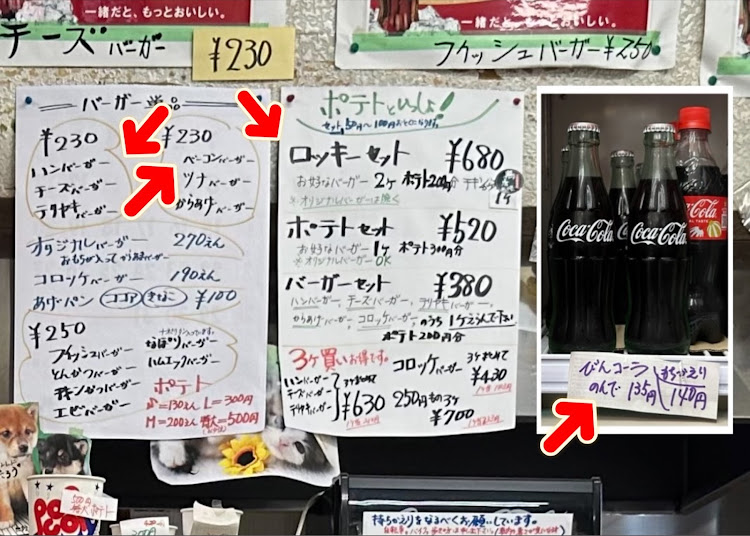 一緒だと、もっとおいしい。
チーズバーガー
¥230
一緒だと、もっとおいしい。
フィッシュバーガー ¥250
バーガー単品
¥230
ハンバーガー
チーズバーガー
テリヤキバーガー
¥230
ベーコンバーガー
ツナバーガー
からあげバーガー
オリジナルバーガー 270えん
コロッケバーガー 190えん
あげパン ココア きなこ ¥100
¥250
フィッシュバーガー
とんかつバーガー
チキンかつバーガー
エビバーガー
なぽりバーガー
ハムエッグバーガー
ポテト
S=130えん L=300円
M=200えん 特大=500円
ポテトといっしょ!
ロッキーセット ¥680
お好なバーガー 2ヶ ポテト200円分
※オリジナルバーガーは除く
1ケ
ポテトセット ¥520
お好なバーガー 1ヶ ポテト300円分
※オリジナルバーガーOK
バーガーセット ¥380
ハンバーガー、チーズバーガー、テリヤキバーガー、
からあげバーガー、コロッケバーガー、のうち1ケえらんで下さい
ポテト200円分
3ヶ買いお得です。
ハンバーガー
チーズバーガー
テリヤキバーガー
3ヶおまとめて
¥630
コロッケバーガー 3ヶまとめて
¥430
250円もの3ヶ
¥700
Coca-Cola
Coca-Cola
Coca-Cola
びんコーラ
のんで 135円
もちかえり
140円
500円
特大ポテト
持ちかえりをなるべくお願いしています。